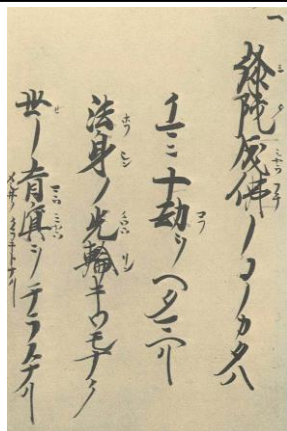 一
弥陁成佛ノコノカタハ
イマニ十劫ヲヘタマヘリ
法身ノ光輪キワモナク
世ノ盲冥ヲテラスナリ